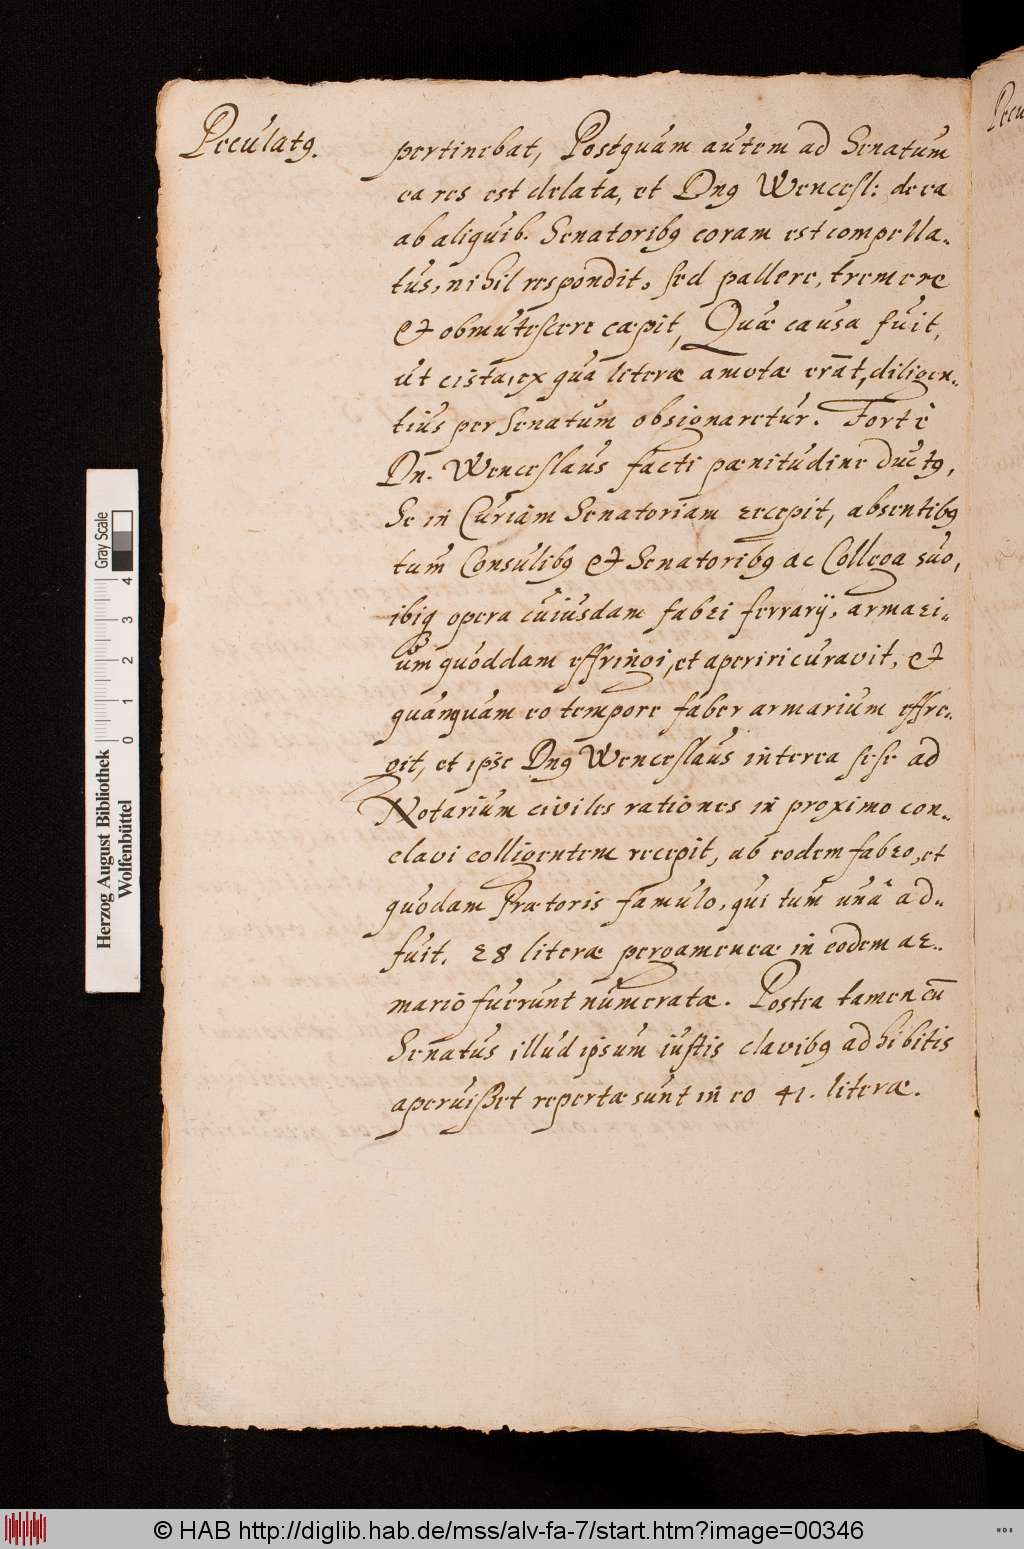 Peculatꝰ.
pertinebat, Postquàm autem ad Senatum
ea res est delata, et Dnꝰ Wencesl: de ea
ab aliquib. Senatoribꝰ coram est compella-
tus, nihil respondit, sed pallere, tremere
& obmutescere cæpit, Quæ causa fuit,
ut cista, ex quâ literæ amotæ erāt, diligen-
tius per Senatum obsignaretur. Fortè
Dn. Wenceslaus facti pænitudine ductꝰ,
Se in Curiam Senatoriam recepit, absentibꝰ
tum Consulibꝰ & Senatoribꝰ ac Collega suo,
ibiq; opera cuiusdam fabri ferrarij, armari-
um quoddam effringi, et aperiri curavit, &
quamquam eo tempore faber armarium effre-
git, et ipse Dnꝰ Wenceslaus interea sese ad
Notarium civiles rationes in proximo con-
clavi colligentem recepit, ab eodem fabro, et
quodam Prætoris famulo, qui tum unâ ad-
fuit, 28 literæ pergameneæ in eodem ar-
mario fuerunt numeratæ. Postea tamen cū
Senatus illud ipsum iustis clavibꝰ adhibitis
aperuißet repertæ sunt in eo 41. literæ.
Pecu
Herzog August Bibliothek
Wolfenbüttel
Gray Scale
0 1 2 3 4
© HAB http://diglib.hab.de/mss/alv-fa-7/start.htm?image=00346